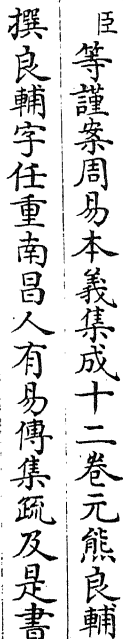 臣等謹案周易本義集成十二卷元熊良輔
撰良輔字任重南昌人有易傳集疏及是書